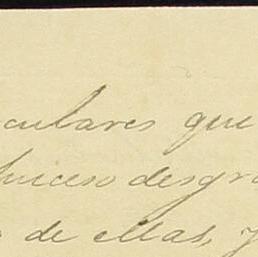 culares que
suceso desgra
de ellas, y